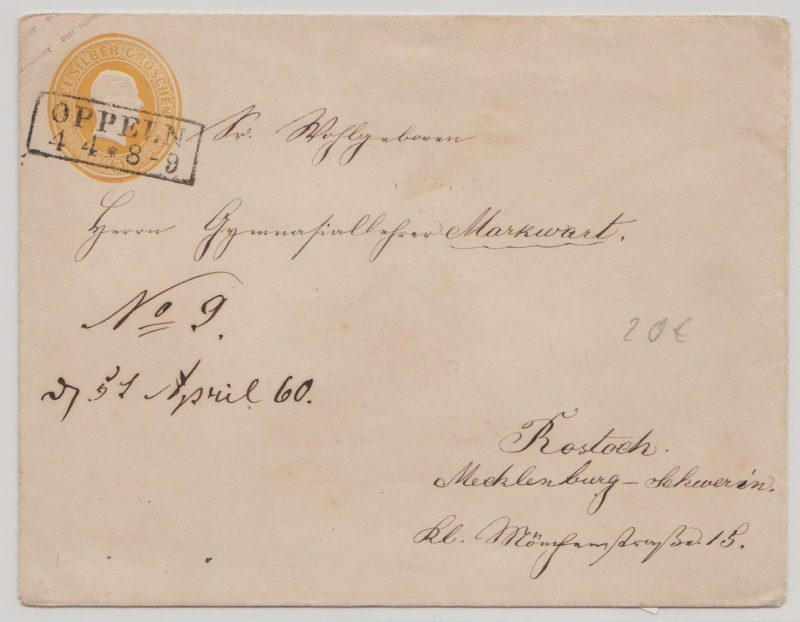 SILBER GROSCHEN
OPPELN
4 4 * 8-9
Sr. Wohlgeboren
Herrn Gymnasiallehrer Markwart.
No 9.
20 €
April 60.
Rostock.
Mecklenburg-Schwerin.
Kl. Mönchenstraße. 15.